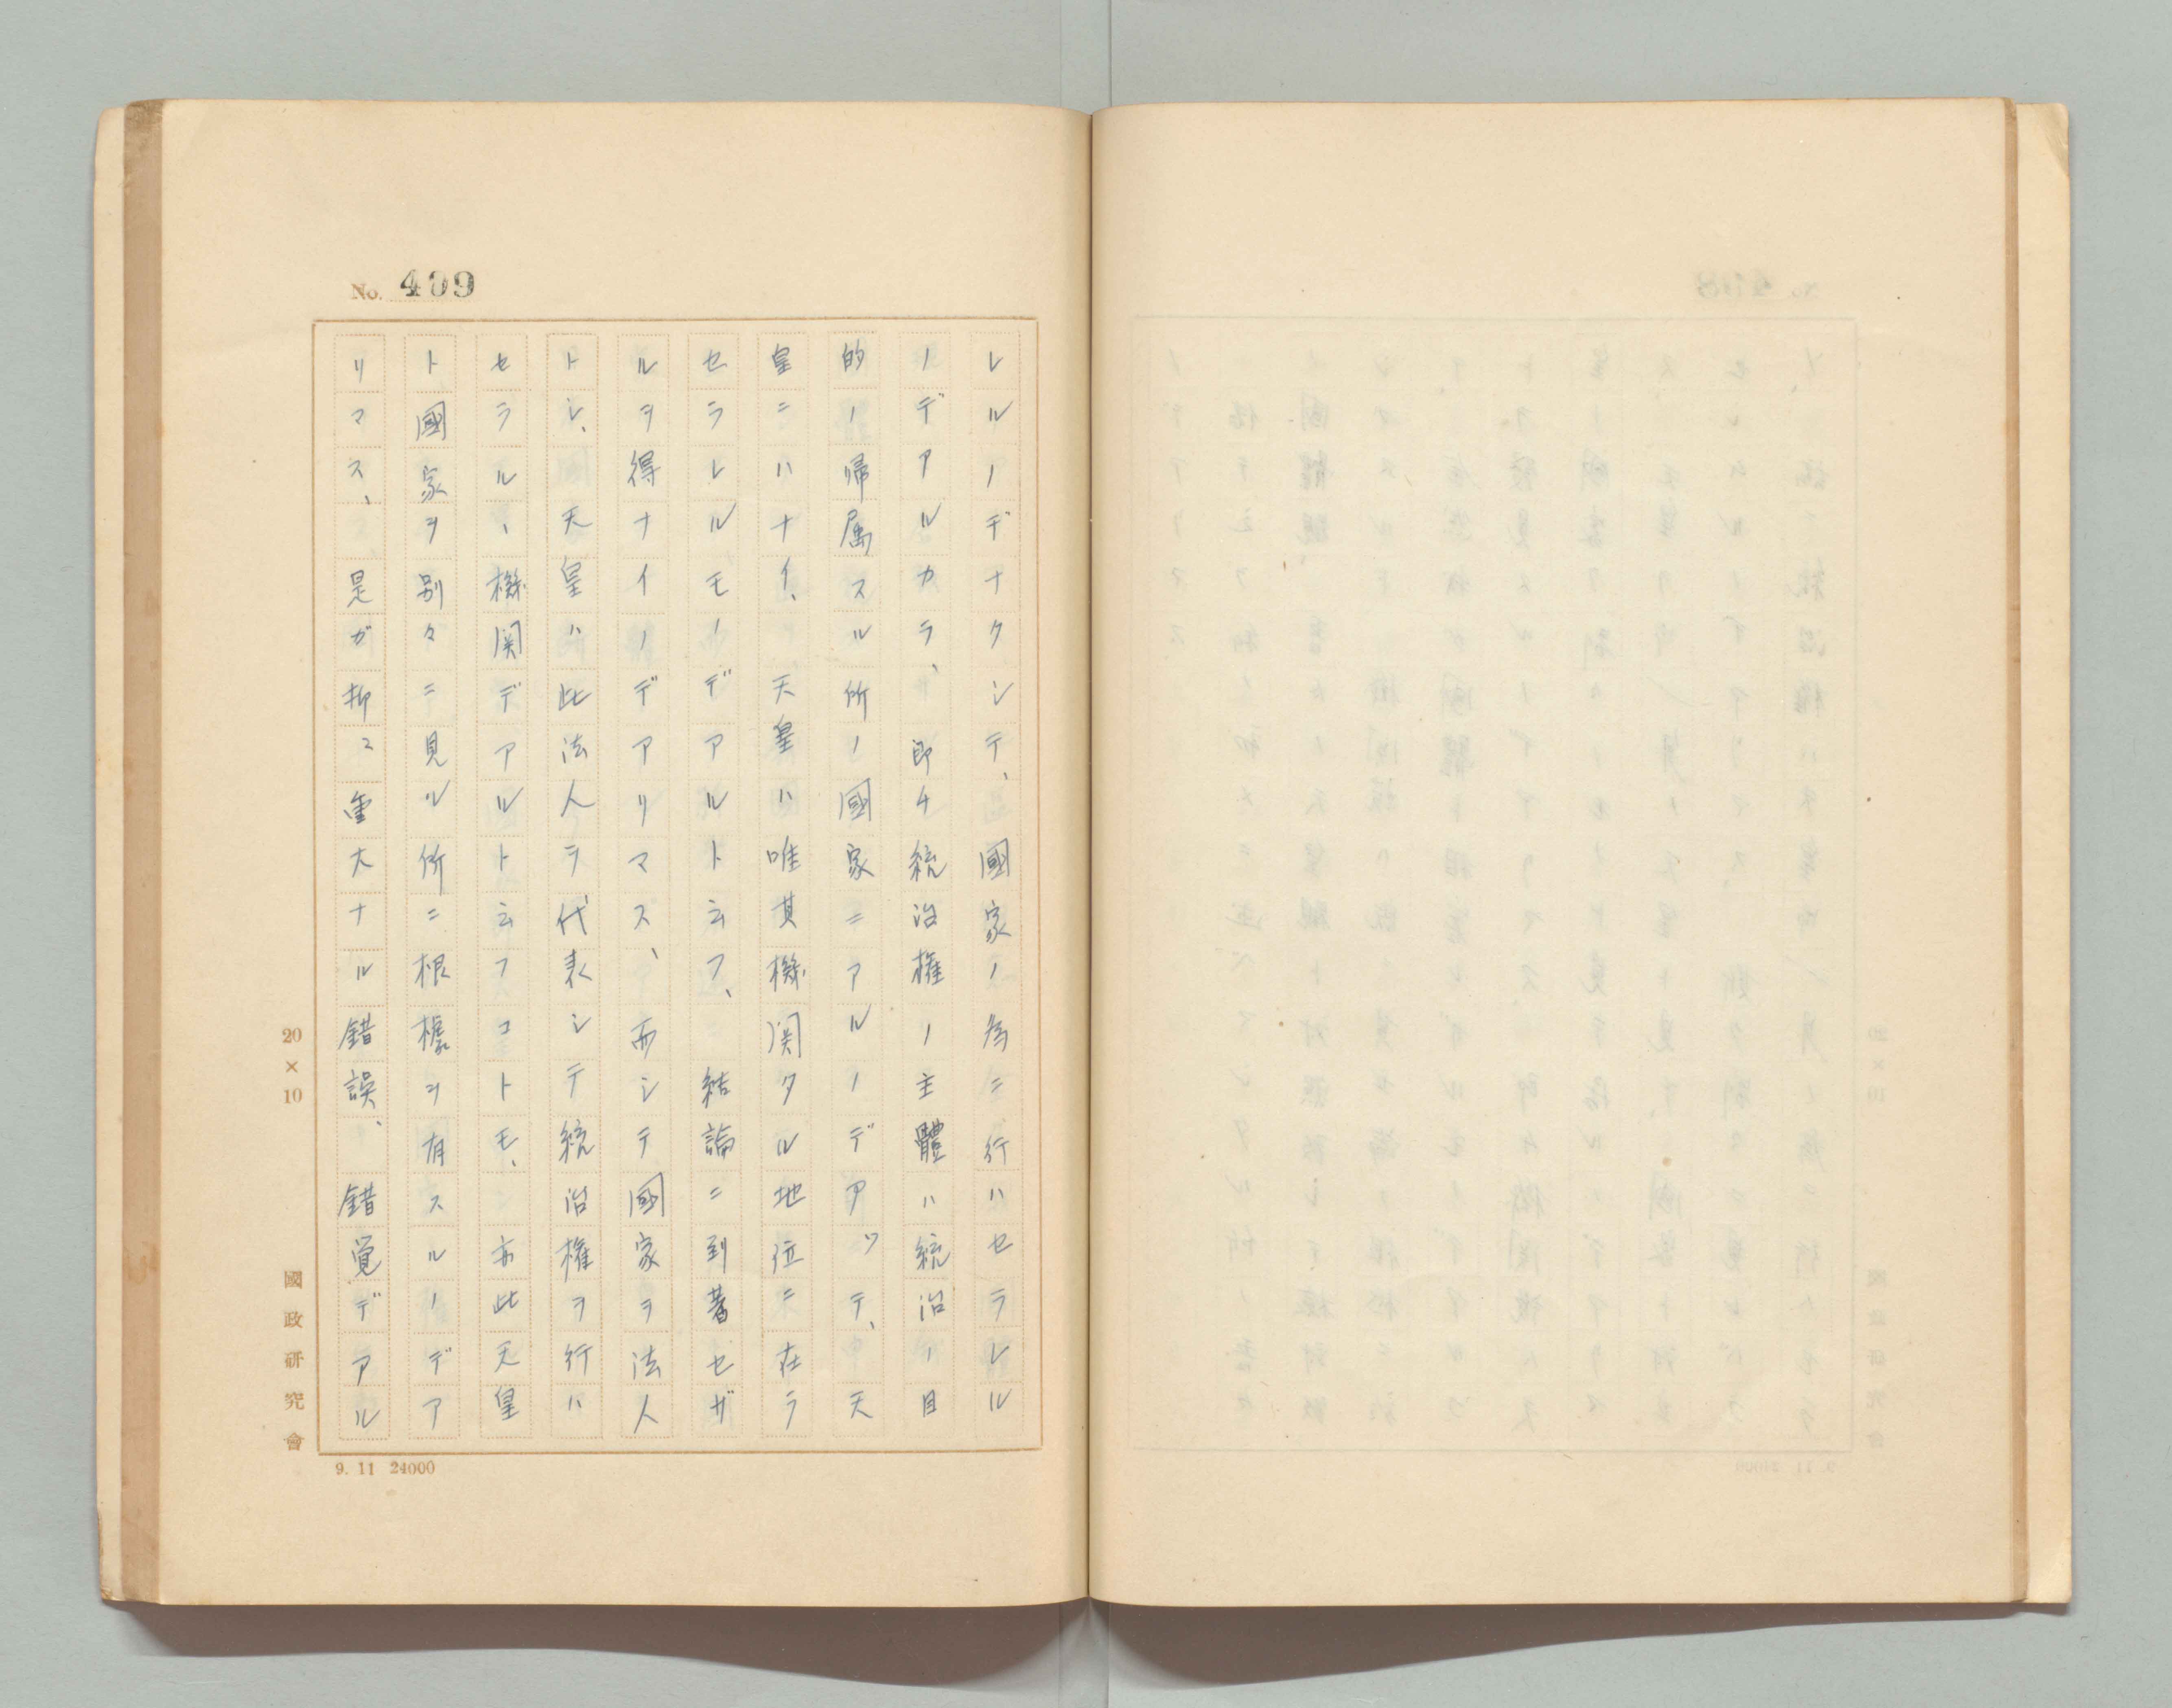 No. 409
レルノデナクシテ、國家ノ為ニ行ハセラレル
ノデアルカラ、即チ統治權ノ主體ハ統治ノ目
的ノ帰属スル所ノ國家ニアルノデアッテ、天
皇ニハナイ、天皇ハ唯其機関タル地位ニ在ラ
セラレルモノデアルト云フ、結論ニ到著セザ
ルヲ得ナイノデアリマス、而シテ國家ヲ法人
トシ、天皇ハ此法人ヲ代表シテ統治權ヲ行ハ
セラル、機関デアルト云フコトモ、亦此天皇
ト國家ヲ別々ニ見ル所ニ根據ヲ有スルノデア
リマス、是ガ抑々重大ナル錯誤、錯覚デアル
20×10
國政研究會
9. 11 24000